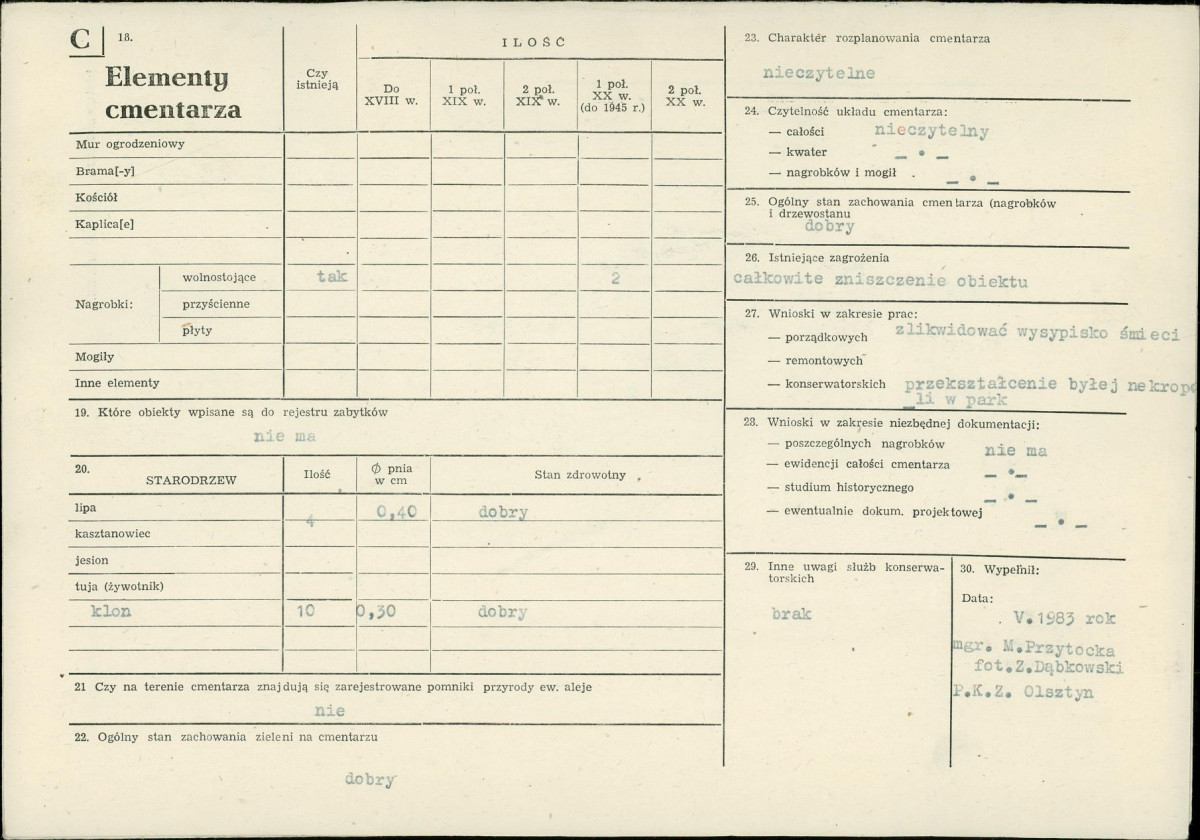 C 18.
Elementy
cmentarza
Czy
istnieją
ILOŚĆ
Do
XVIII w.
1 poł.
XIX w.
2 poł.
XIX w.
1 poł.
XX w.
(do 1945 r.)
2 poł.
XX w.
Mur ogrodzeniowy
Brama[-y]
Kościół
Kaplica[e]
Nagrobki:
wolnostojące tak 2
przyścienne
płyty
Mogiły
Inne elementy
19. Które obiekty wpisane są do rejestru zabytków
nie ma
20.
STARODRZEW
Ilość
Ø pnia
w cm
Stan zdrowotny
lipa 4 0,40 dobry
kasztanowiec
jesion
tuja (żywotnik)
klon 10 0,30 dobry
21 Czy na terenie cmentarza znajdują się zarejestrowane pomniki przyrody ew. aleje
nie
22. Ogólny stan zachowania zieleni na cmentarzu
dobry
23. Charaktér rozplanowania cmentarza
nieczytelne
24. Czytelność układu cmentarza:
— całości nieczytelny
— kwater _ . _
— nagrobków i mogił . _ . _
25. Ogólny stan zachowania cmentarza (nagrobków
i drzewostanu
dobry
26. Istniejące zagrożenia
całkowite zniszczenie obiektu
27. Wnioski w zakresie prac:
— porządkowych zlikwidować wysypisko śmieci
— remontowych
— konserwatorskich przekształcenie byłej nekropo
_li w park
28. Wnioski w zakresie niezbędnej dokumentacji:
— poszczególnych nagrobków nie ma
— ewidencji całości cmentarza _ . _
— studium historycznego _ . _
— ewentualnie dokum. projektowej _ . _
29. Inne uwagi służb konserwa-
torskich
brak
30. Wypełnił:
Data:
V.1983 rok
mgr. M.Przytocka
fot.Z.Dąbkowski
P.K.Z. Olsztyn